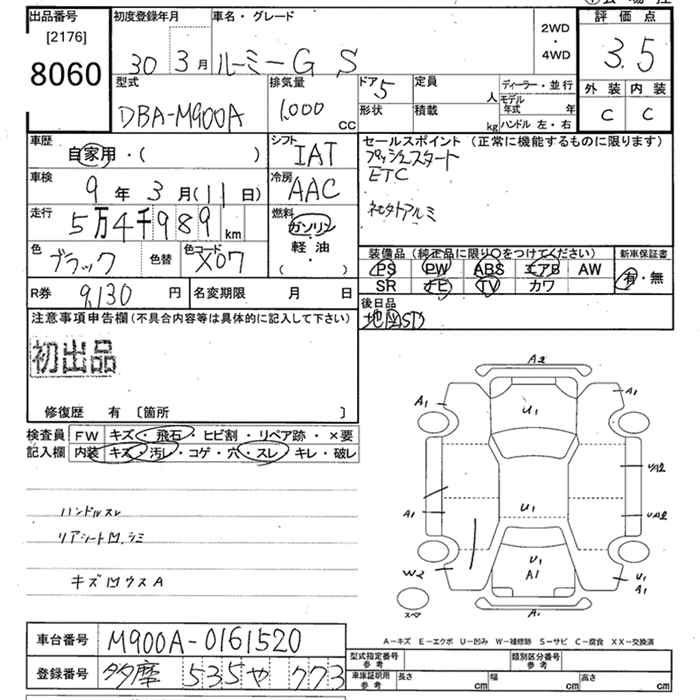 出品番号
[2176]
8060
初度登録年月
30 3月
車名・グレード
ルーミー G S
2WD
・
4WD
評価点
3.5
外装 内装
C C
型式
DBA-M900A
排気量
1,000 cc
ドア 5
定員 人
形状
積載 kg
ディーラー・並行
モデル年式 年
ハンドル 左・右
車歴
自家用・( )
シフト
IAT
セールスポイント(正常に機能するものに限ります)
プッシュスタート
ETC
車検
9年 3月(11日)
冷房
AAC
走行
5万4千989 km
燃料
ガソリン
・
軽・油
( )
色
ブラック
色替
色コード
X07
装備品(純正品に限り〇をつけてください)
PS PW ABS エアB AW
SR ナビ TV カワ
新車保証書
有・無
R券 9,130 円
名変期限 月 日
後日品
注意事項申告欄(不具合内容等は具体的に記入して下さい)
初出品
修復歴 有 〔箇所 〕
検査員
記入欄
FW キズ・飛石・ヒビ割・リペア跡・×要
内装 キズ・汚レ・コゲ・穴・スレ・キレ・破レ
ハンドルスレ
リアシート凹、シミ
キズ凹ウスA
A2
A1
A1
U1
U1
A1
W2
U1
A1
U1
A1
A1
スペア
A-キズ E-エクボ U-凹み W-補修跡 S-サビ C-腐食 XX-交換済
車台番号 M900A-0161520
登録番号 多摩 535 や 773
型式指定番号
参考
類別区分番号
参考
車庫証明用
参考
長さ cm
幅 cm
高さ cm